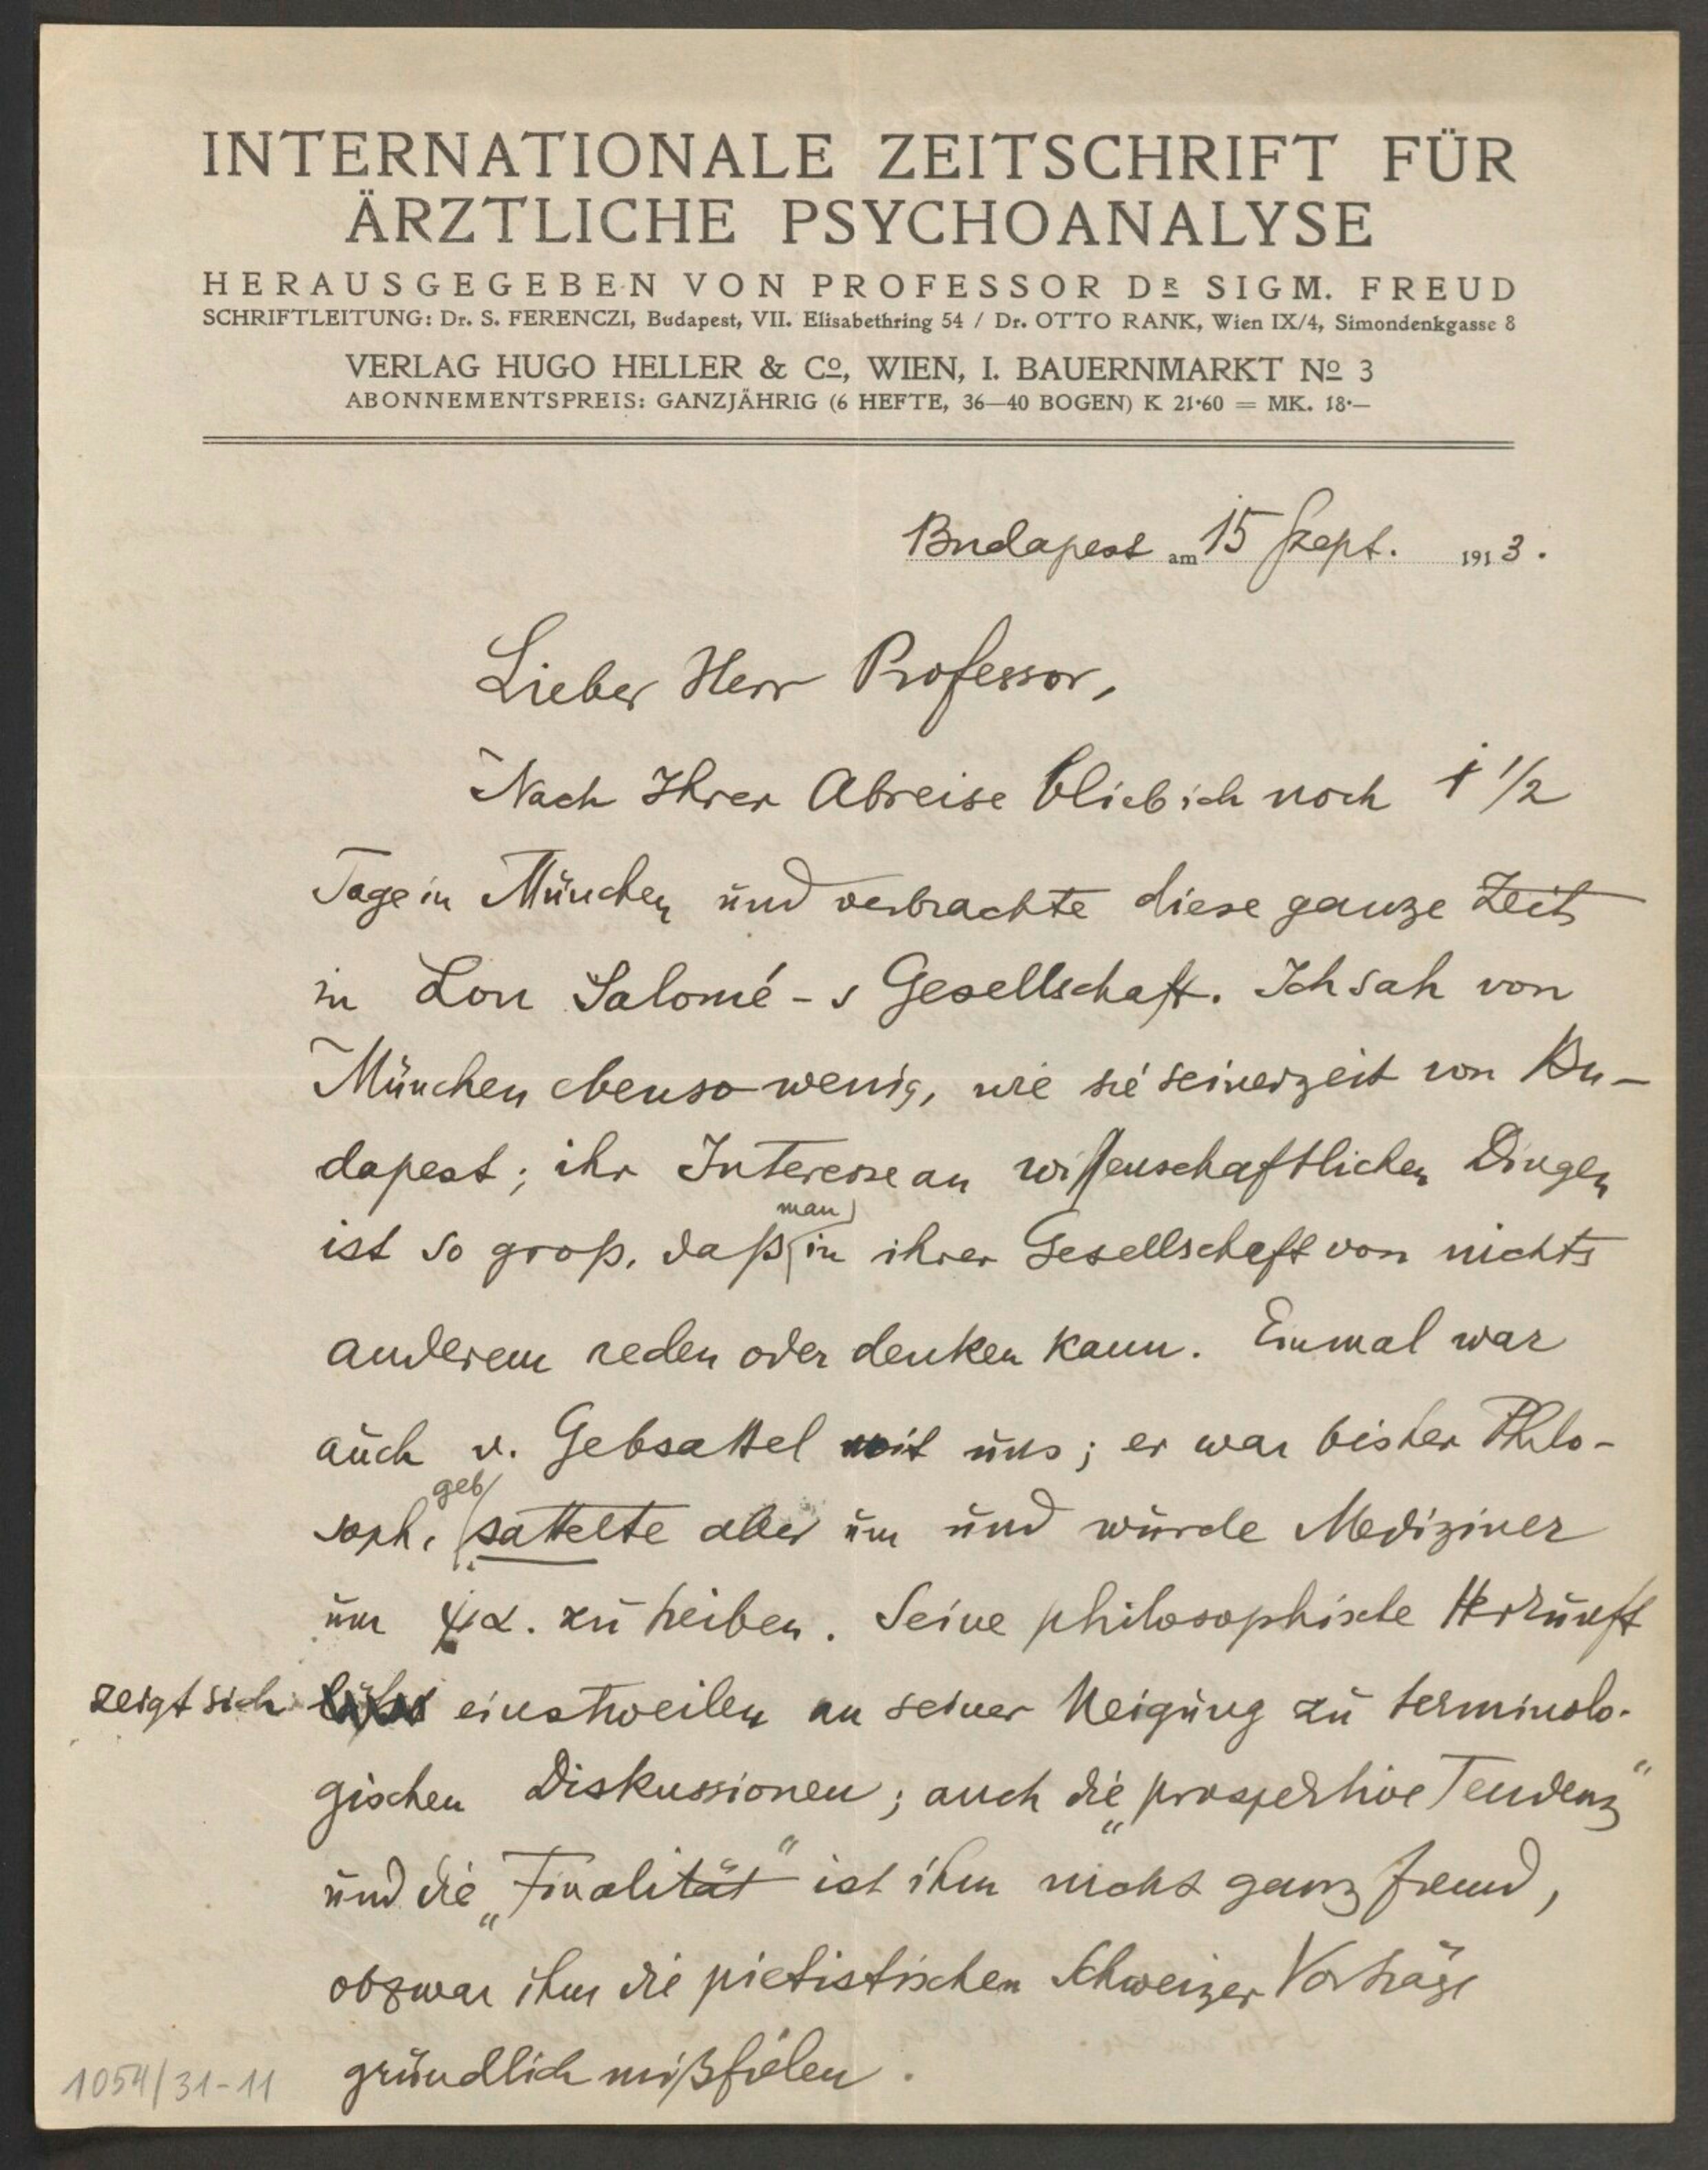 INTERNATIONALE ZEITSCHRIFT FÜR
ÄRZTLICHE PSYCHOANALYSE
HERAUSGEGEBEN VON PROFESSOR DR SIGM. FREUD
SCHRIFTLEITUNG: Dr. S. FERENCZI, Budapest, VII. Elisabethring 54 / Dr. OTTO RANK, Wien IX/4, Simondenkgasse 8
VERLAG HUGO HELLER & Co, WIEN, I. BAUERNMARKT No 3
ABONNEMENTSPREIS: GANZJÄHRIG (6 HEFTE, 36—40 BOGEN) K 21·60 = MK. 18·—
Budapest am 15 Szept. 1913.
Lieber Herr Professor,
Nach Ihrer Abreise blieb ich noch 1 1/2
Tage in München und verbrachte diese ganze Zeit
in Lou Salomé-s Gesellschaft. Ich sah von
München ebenso wenig, wie sie seinerzeit von Bu-
dapest; ihr Interesse an wissenschaftlichen Dingen
ist so groß, daß man in ihrer Gesellschaft von nichts
anderem reden oder denken kann. Einmal war
auch v. Gebsattel mit uns; er war bisher Philo-
soph, geb/sattelte aber um und wurde Mediziner
um ψα. zu treiben. Seine philosophische Herkunft
zeigt sich einstweilen an seiner Neigung zu terminolo-
gischen Diskussionen; auch die „prospektive Tendenz“
und die „Finalität“ ist ihm nicht ganz fremd,
obzwar ihm die pietistischen Schweizer Vorträge
gründlich mißfielen.
1054/31-11